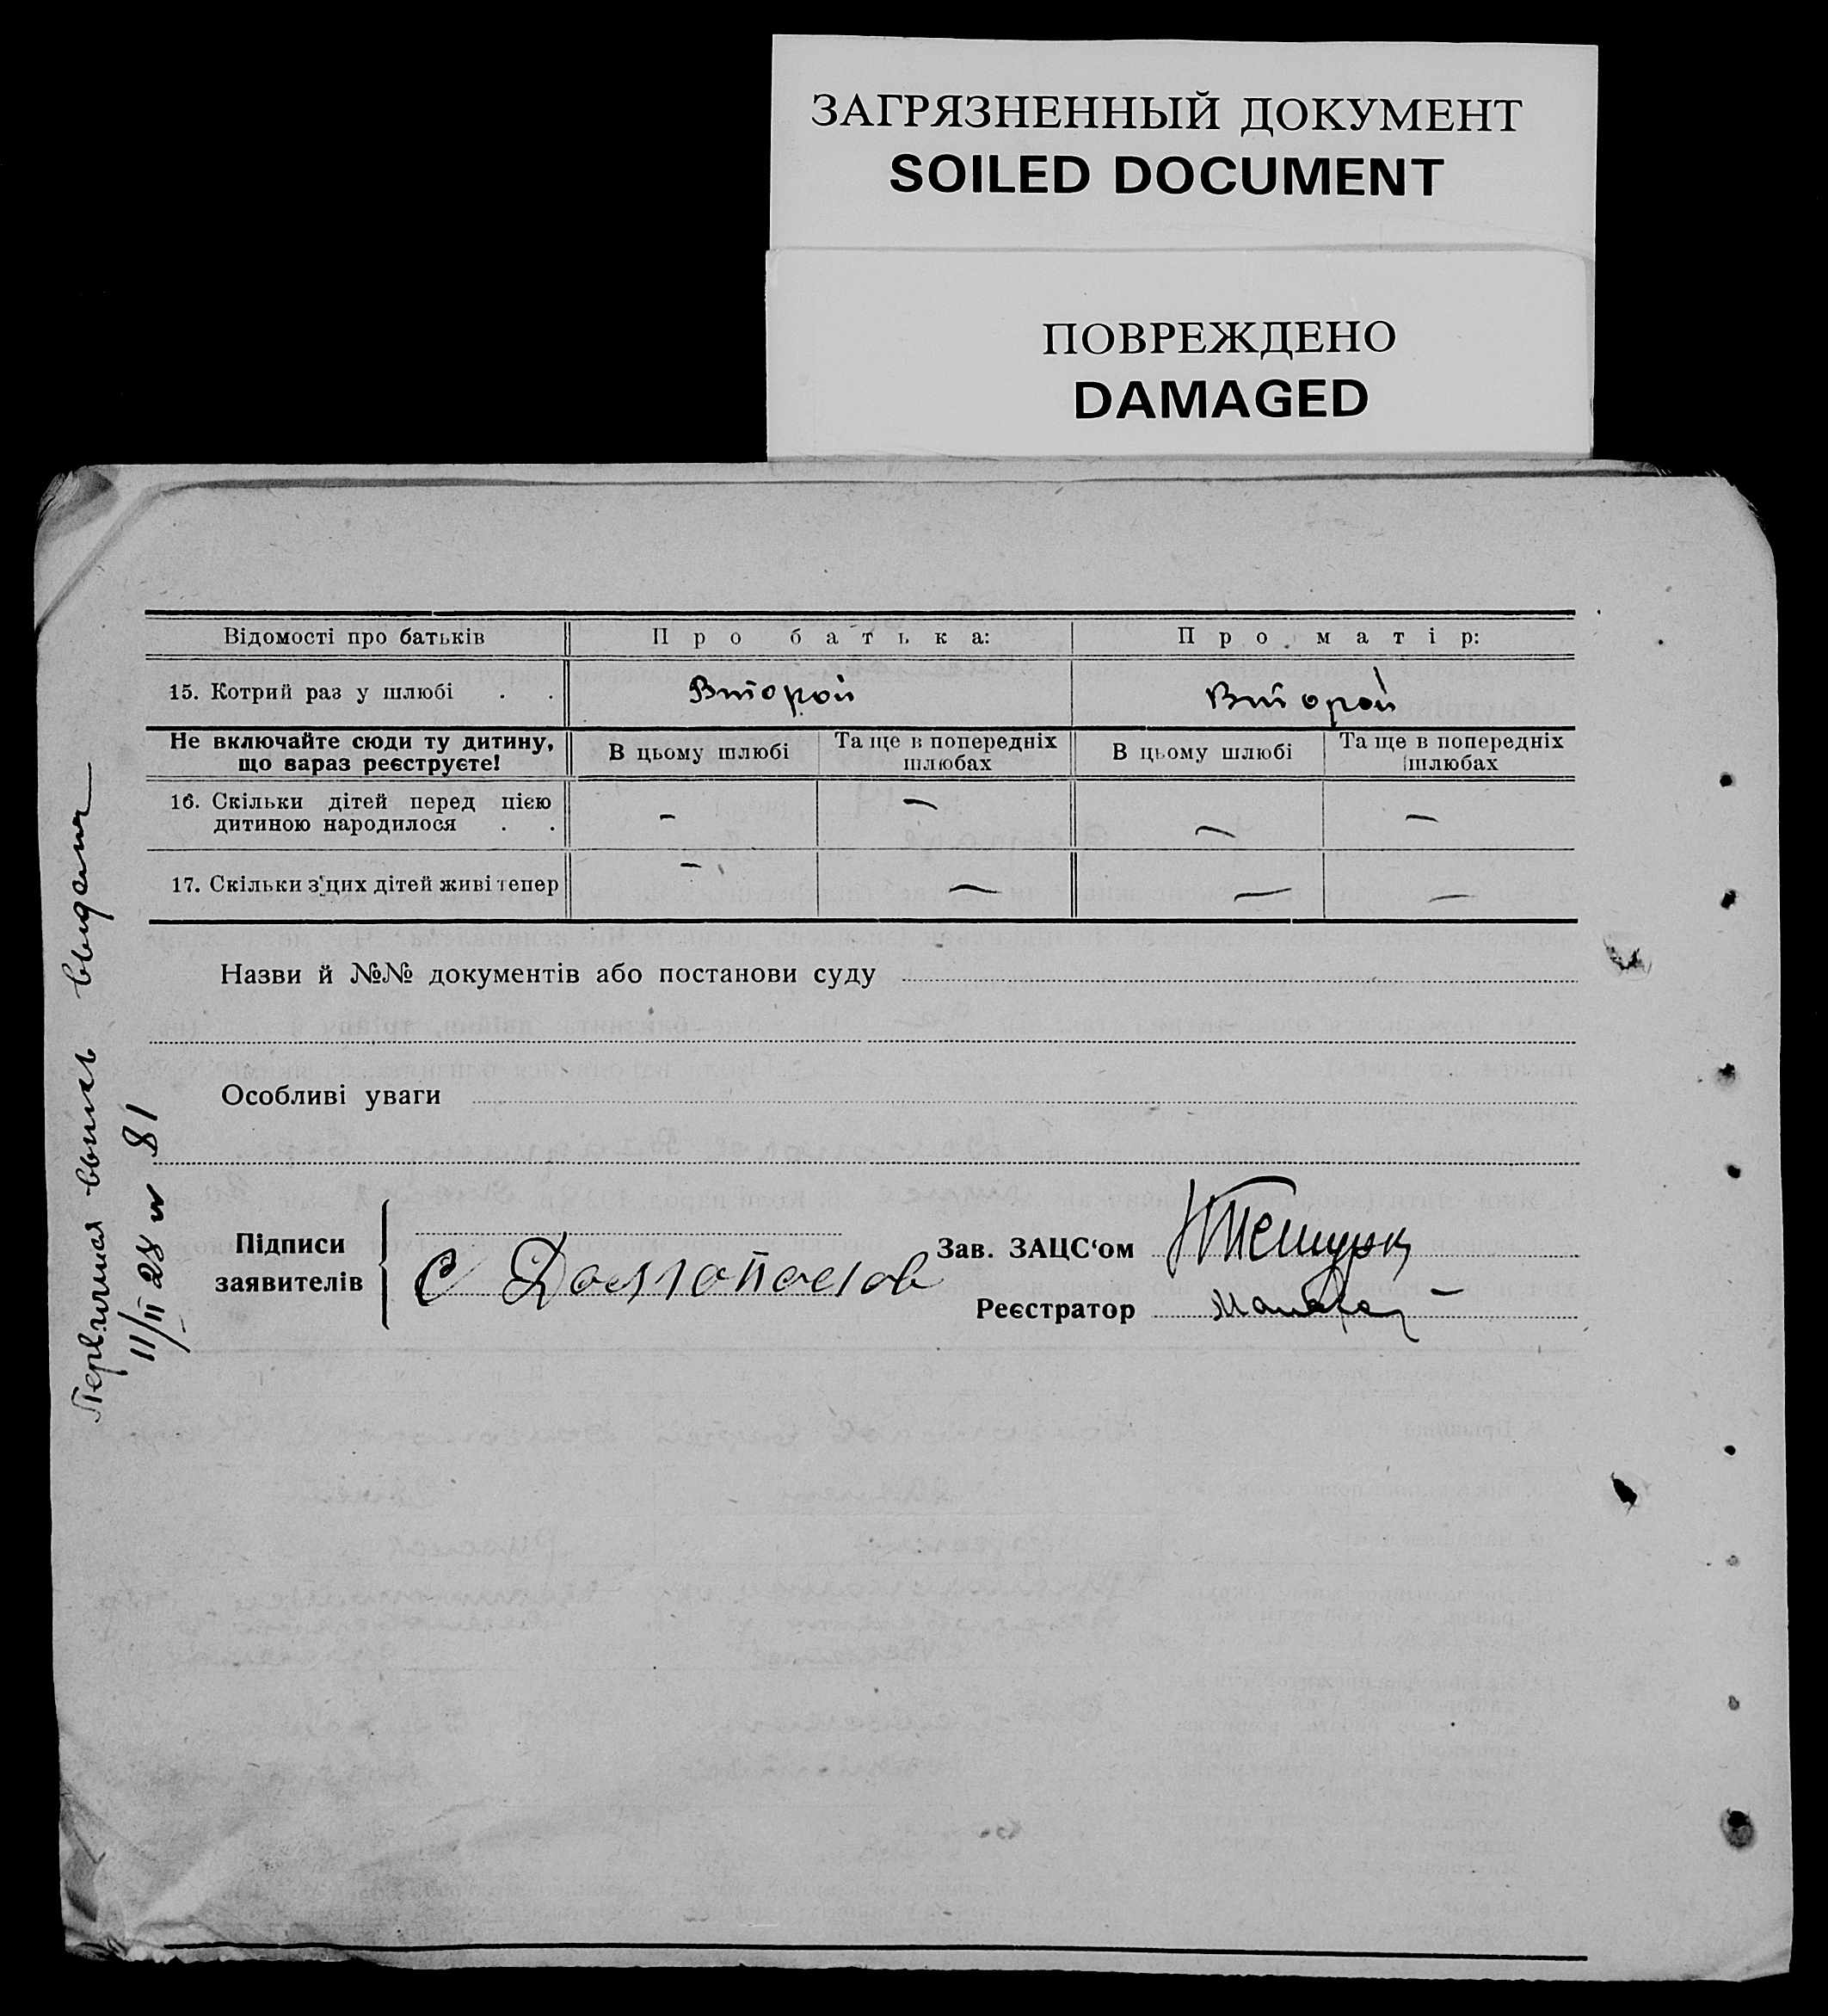 ЗАГРЯЗНЕННЫЙ ДОКУМЕНТ
SOILED DOCUMENT
ПОВРЕЖДЕНО
DAMAGED
Відомості про батьків Про батька: Про матір:
15. Котрий раз у шлюбі . . Второй Второй
Не включайте сюди ту дитину,
що вараз реєструєте!
В цьому шлюбі
Та ще в попередніх
шлюбах
В цьому шлюбі
Та ще в попередніх
шлюбах
16. Скільки дітей перед цією
дитиною народилося . . – – – –
17. Скільки з'цих дітей живі тепер – – – –
Назви й №№ документів або постанови суду
Особливі уваги
Підписи
заявителів
С Долгополов
Зав. ЗАЦС‘ом
Реєстратор
Первичная выпись выдана
11/II 28 № 81